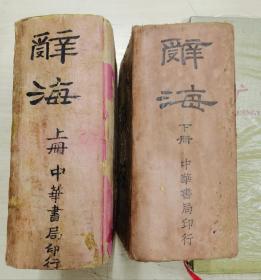 辭海
上冊
中華書局印行
辭海
下冊
中華書局印行